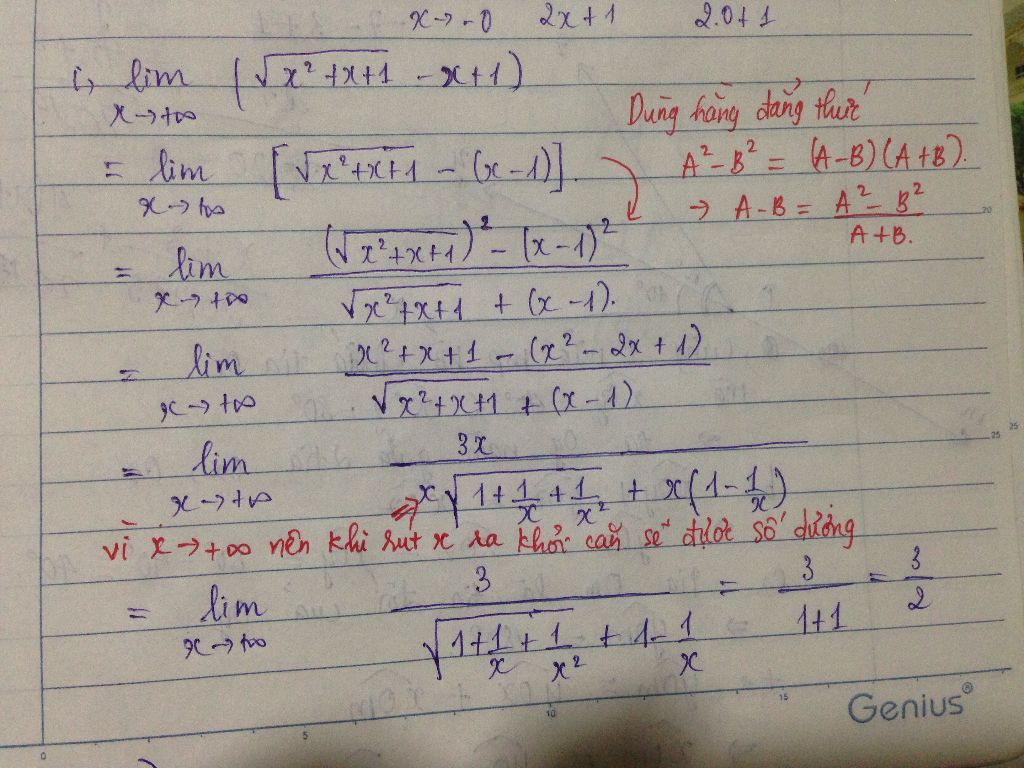 x → -0 2x+1 2.0+1
i, lim x→+∞ (√(x²+x+1) - x+1)
Dùng hằng đẳng thức
= lim x→+∞ [√(x²+x+1) - (x-1)].
A² - B² = (A-B)(A+B).
→ A-B = (A² - B²)/(A+B).
= lim x→+∞ ((√(x²+x+1))² - (x-1)²)/(√(x²+x+1) + (x-1)).
= lim x→+∞ (x²+x+1 - (x² - 2x+1))/(√(x²+x+1) + (x-1))
= lim x→+∞ 3x/(x√(1+1/x+1/x²) + x(1-1/x))
vì x→+∞ nên khi rút x ra khỏi căn sẽ được số dương
= lim x→+∞ 3/(√(1+1/x+1/x²) + 1-1/x) = 3/(1+1) = 3/2
Genius®
0 5 10 15
20
25 25